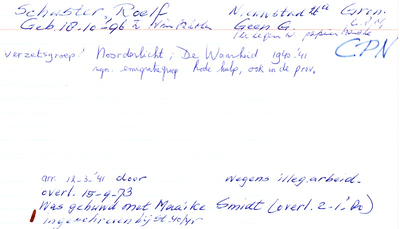 Schuster, Roelf Nieuwstad Gron.
Geb. 18-10-96 Geen G.
CPN
verzetsgroep: Noorderlicht; De Waarheid 1940-'41
Rode hulp, ook in de prov.
arr. 12-3-'41 door wegens illeg. arbeid.
overl. 15-9-73
Was gehuwd met Maaike Smidt (overl. 2-1-'80)
ingeschreven bij st. 40/45